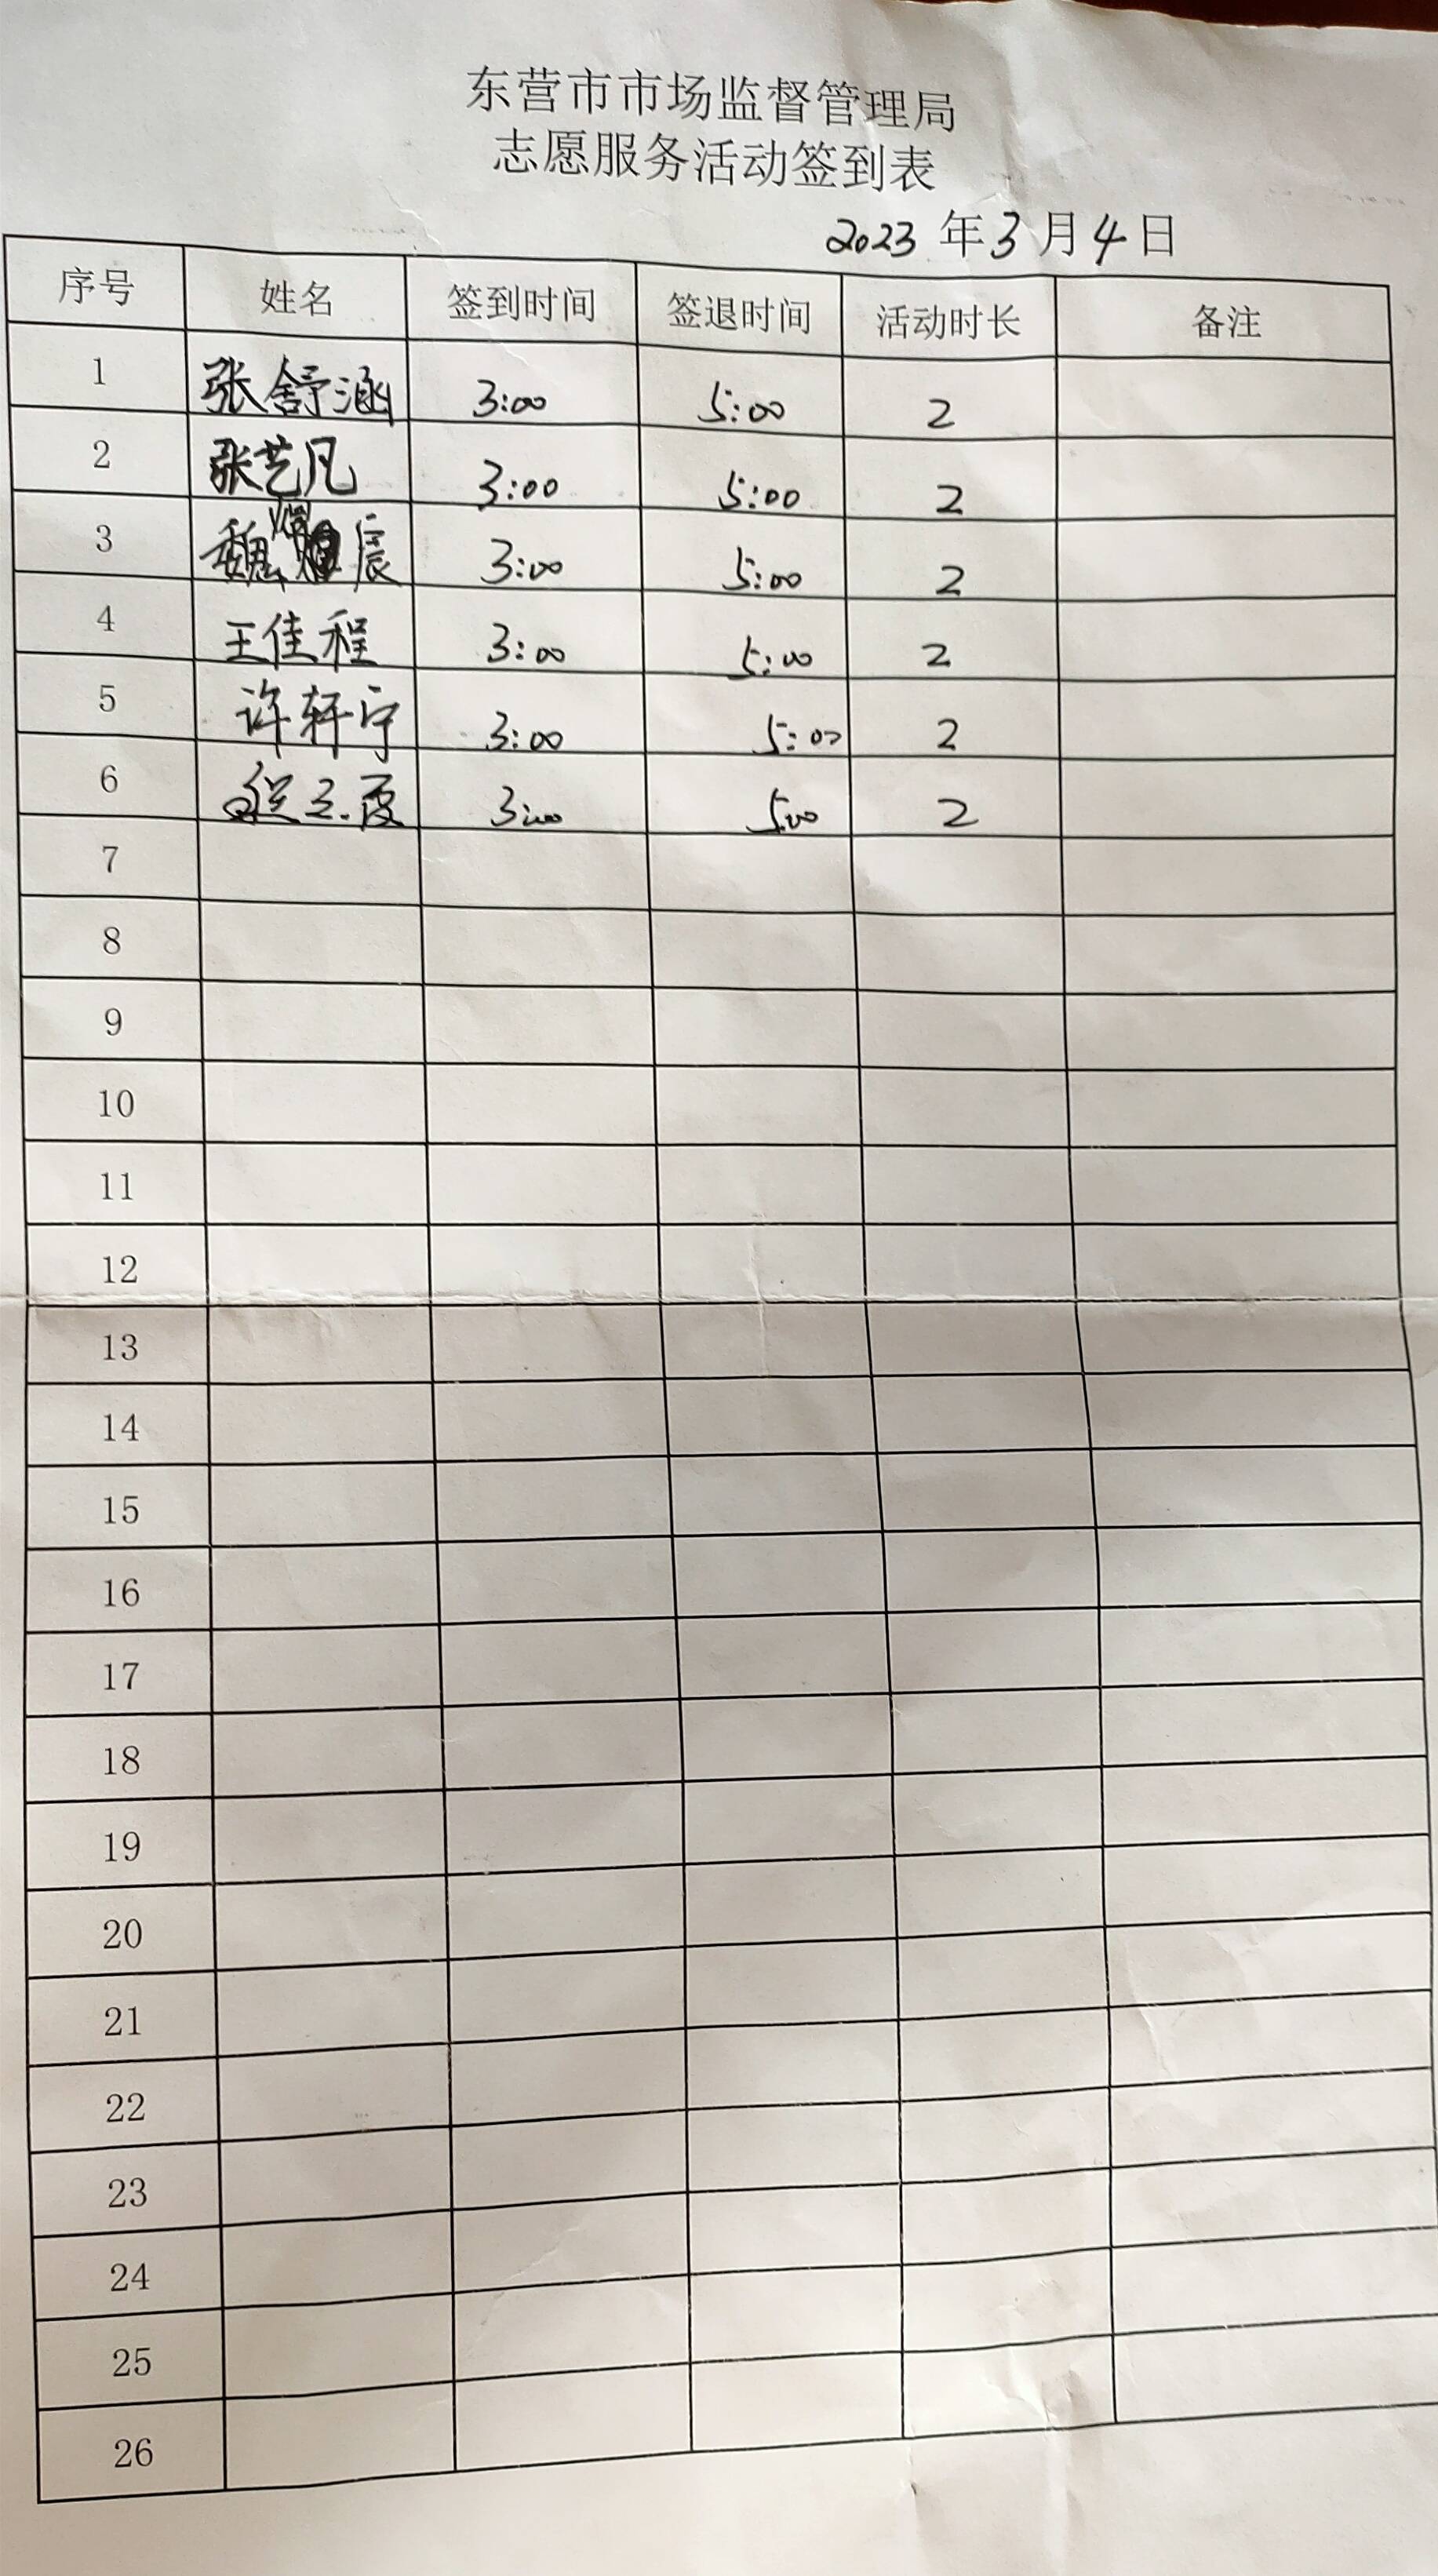 东营市市场监督管理局
志愿服务活动签到表
2023 年 3 月 4 日
序号 姓名 签到时间 签退时间 活动时长 备注
1 张舒涵 3:00 5:00 2
2 张艺凡 3:00 5:00 2
3 魏 宸 3:00 5:00 2
4 王佳程 3:00 5:00 2
5 许轩宁 3:00 5:00 2
6 3:00 5:00 2
7
8
9
10
11
12
13
14
15
16
17
18
19
20
21
22
23
24
25
26